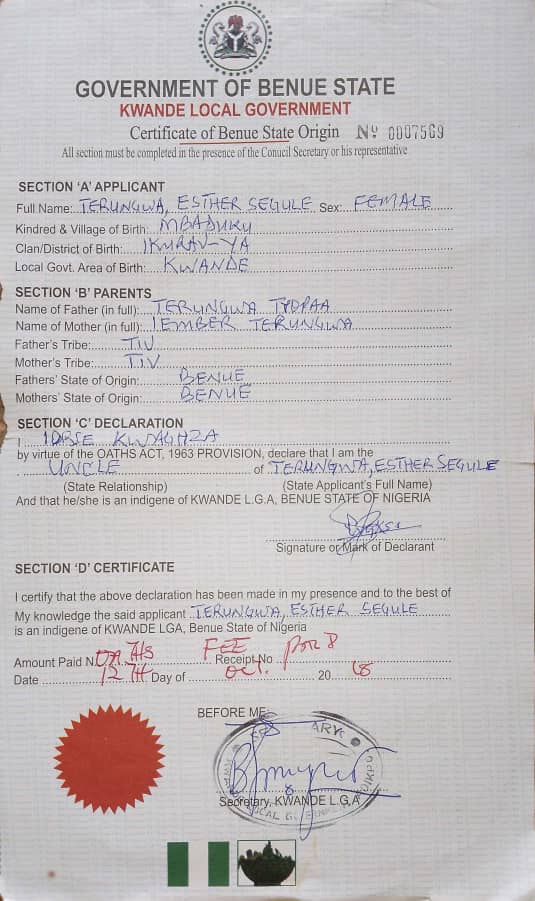 GOVERNMENT OF BENUE STATE
KWANDE LOCAL GOVERNMENT
Certificate of Benue State Origin Nº 0007569
All section must be completed in the presence of the Conucil Secretary or his representative
SECTION ‘A’ APPLICANT
Full Name: TERUNGWA, ESTHER SEGULE Sex: FEMALE
Kindred & Village of Birth: MBADUKU
Clan/District of Birth: IKURAV-YA
Local Govt. Area of Birth: KWANDE
SECTION ‘B’ PARENTS
Name of Father (in full): TERUNGWA
Name of Mother (in full): IEMBER TERUNGWA
Father's Tribe: TIV
Mother's Tribe: TIV
Fathers' State of Origin: BENUE
Mothers' State of Origin: BENUE
SECTION ‘C’ DECLARATION
I KWAGHZA
by virtue of the OATHS ACT, 1963 PROVISION, declare that I am the
UNCLE of TERUNGWA, ESTHER SEGULE
(State Relationship) (State Applicant's Full Name)
And that he/she is an indigene of KWANDE L.G.A, BENUE STATE OF NIGERIA
Signature or Mark of Declarant
SECTION ‘D’ CERTIFICATE
I certify that the above declaration has been made in my presence and to the best of
My knowledge the said applicant TERUNGWA, ESTHER SEGULE
is an indigene of KWANDE LGA, Benue State of Nigeria
Amount Paid N. FEE Receipt No
Date 12TH Day of OCT. 2018
BEFORE ME:
Secretary, KWANDE L.G.A